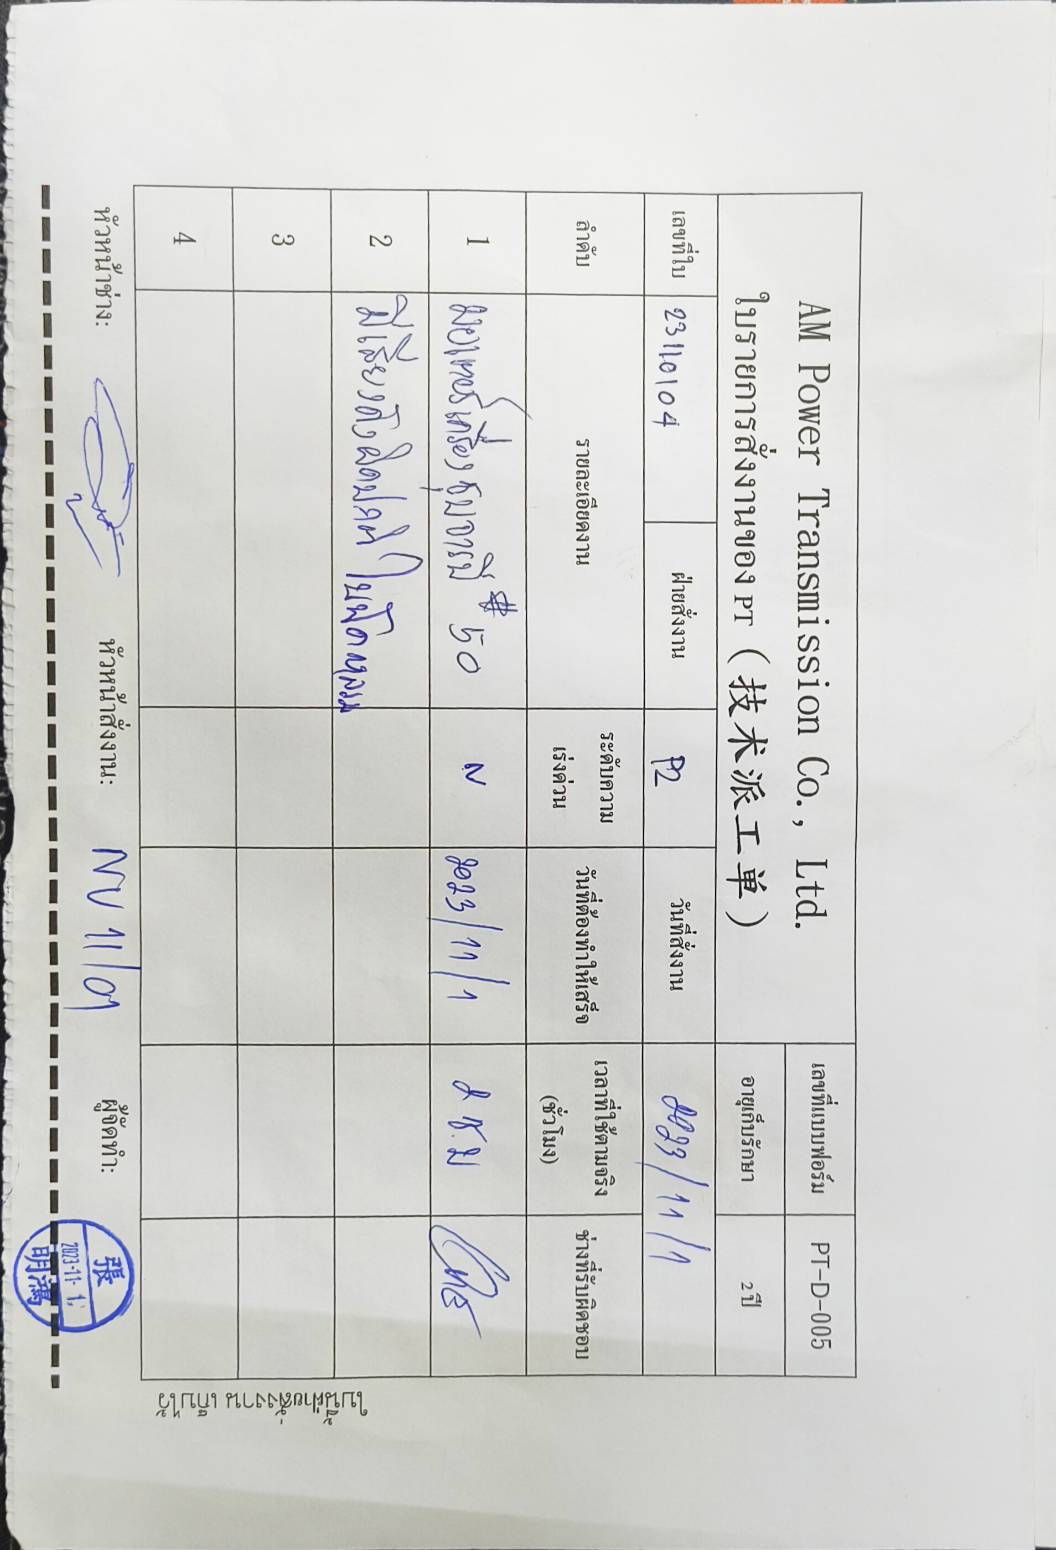 AM Power Transmission Co., Ltd.
ใบรายการสั่งงานของ PT (技术派工单)
เลขที่แบบฟอร์ม PT-D-005
อายุเก็บรักษา 2 ปี
เลขที่ใบ 23110104 ฝ่ายสั่งงาน P2 วันที่สั่งงาน 2023/11/1
ลำดับ รายละเอียดงาน ระดับความเร่งด่วน วันที่ต้องทำให้เสร็จ เวลาที่ใช้ตามจริง (ชั่วโมง) ช่างที่รับผิดชอบ
1 มอเตอร์เครื่องชุบจารบี #50 N 2023/11/1 2 ช.ม
2 มีเสียงดังผิดปกติ ใบพัดหลวม
3
4
หัวหน้าช่าง: หัวหน้าสั่งงาน: NU 11/01 ผู้จัดทำ:
張
2023-11-1
明鴻
ใบนี้ฝ่ายสั่งงาน เก็บไว้